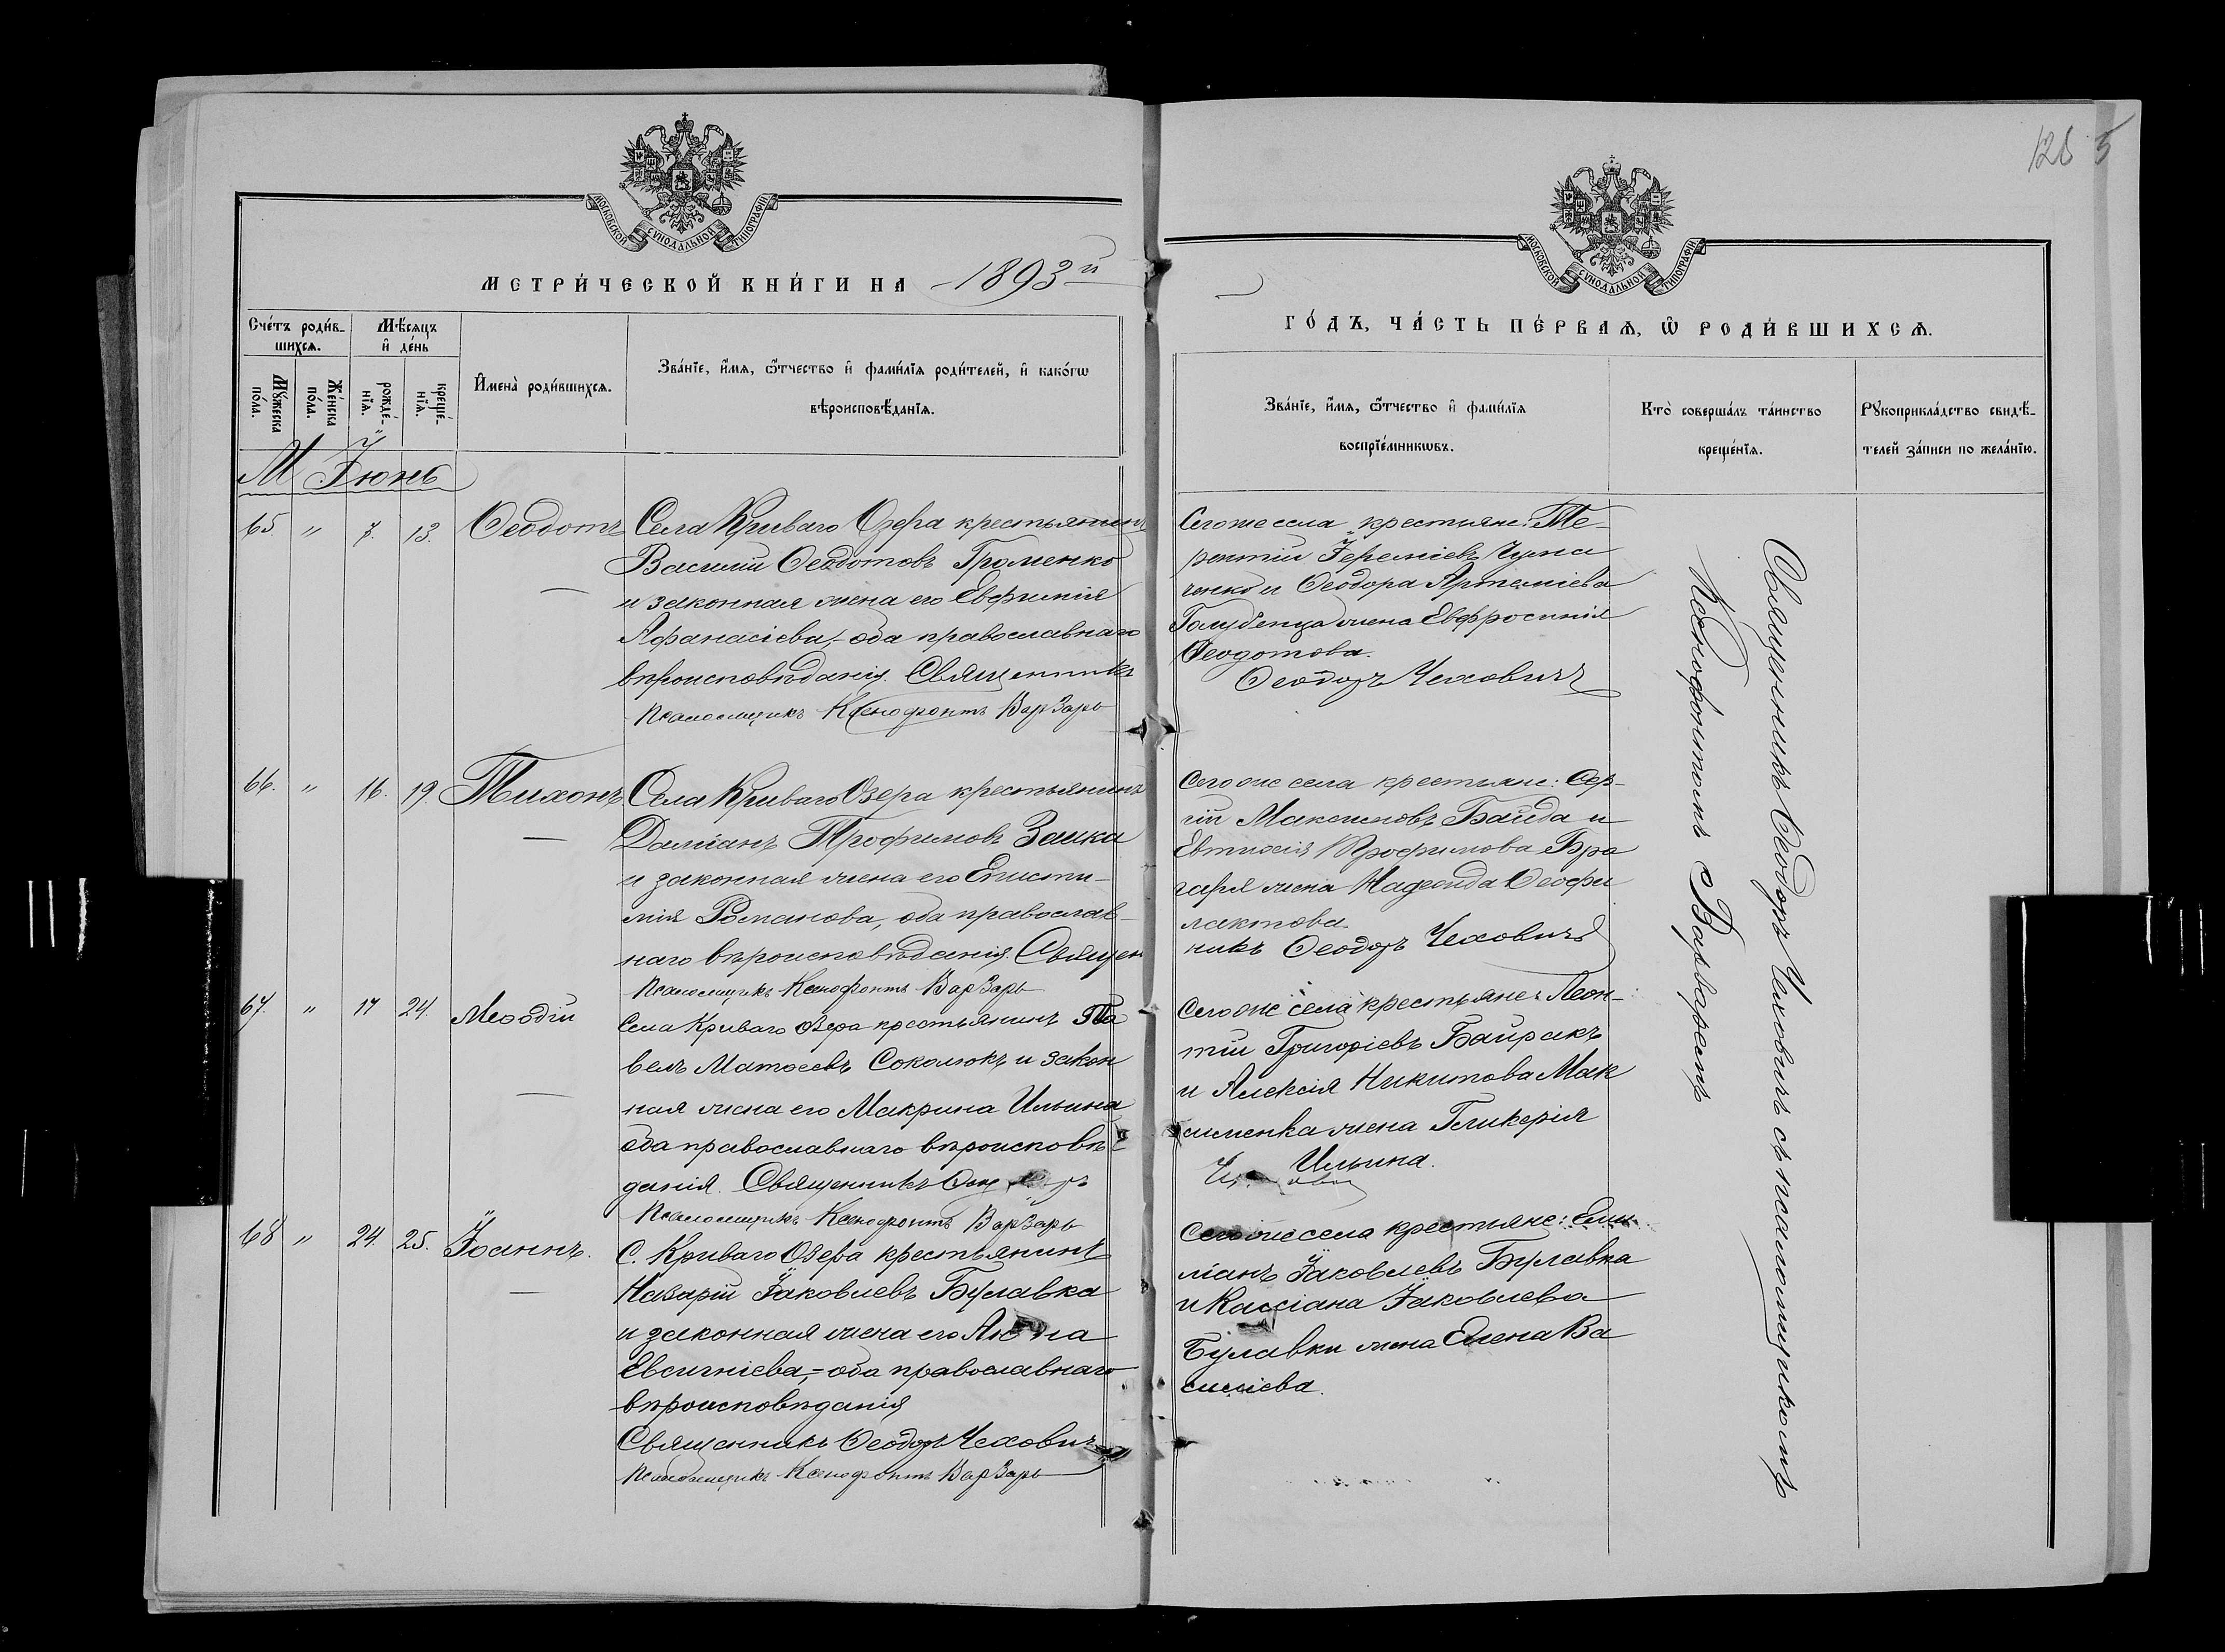 МОСКОВСКОЙ СѴНОДАЛЬНОЙ ТИПОГРАФІИ
МЕТРИ́ЧЕСКОЙ КНИ́ГИ НА 1893й
Сче́тъ роди́в-
шихсѧ.
Мѣ́сѧцъ
и҆ де́нь
Мꙋ́жеска
по́ла.
Же́нска
по́ла.
рожде́-
нїѧ.
креще́-
нїѧ.
И҆мена̀ роди́вшихсѧ.
Зва́нїе, и҆́мѧ, ѻ҆́тчество и҆ фами́лїѧ роди́телей, и҆ како́гѡ
вѣроисповѣ́данїѧ.
М Іюнь
65. " 7. 13. Ѳеодотъ
Села Криваго Озера крестьянинъ
Василій Ѳеодотовъ Громенко
и законная жена его Евфимія
Афанасіева, – оба православнаго
вѣроисповѣданія. Священникъ
Псаломщикъ Ксенофонтъ Варзарь
66. " 16. 19. Тихонъ
Села Криваго Озера крестьянинъ
Даміанъ Трофимовъ Заика
и законная жена его Еписти-
мія Романова, оба православ-
наго вѣроисповѣданія. Священ
Псаломщикъ Ксенофонтъ Варзарь
67. " 17 24. Меѳодій
Села Криваго Озера крестьянинъ Па
велъ Матѳеевъ Соколюкъ и закон
ная жена его Макрина Ильина
оба православнаго вѣроисповѣ-
данія. Священникъ
Псаломщикъ Ксенофонтъ Варзарь
68 " 24. 25. Іоаннъ.
С. Криваго Озера крестьянинъ
Назарій Іаковлевъ Булавка
и законная жена его
Евсигніева, – оба православнаго
вѣроисповѣданія
Священникъ Ѳеодоръ Чеховичъ
Псаломщикъ Ксенофонтъ Варзарь
128 5
МОСКОВСКОЙ СѴНОДАЛЬНОЙ ТИПОГРАФІИ
ГО́ДЪ, ЧА́СТЬ ПЕ́РВАѦ, Ѡ҆ РОДИ́ВШИХСѦ.
Зва́нїе, и҆́мѧ, ѻ҆́тчество и҆ фами́лїѧ
воспрїе́мникѡвъ.
Кто̀ соверша́лъ та́инство
креще́нїѧ.
Рꙋкоприкла́дство свидѣ́-
телей за́писи по жела́нїю.
Сегоже села крестьяне: Те-
рентій Іереміевъ Чума
ченко и Ѳеодора Артеміева
Голубенца жена Евфросинія
Ѳеодотова.
Ѳеодоръ Чеховичъ
Сегоже села крестьяне: Сер-
гій Максимовъ Байда и
Евтихія Трофимова Бра
гаря жена Надежда Ѳеофи
лактова.
никъ Ѳеодоръ Чеховичъ
Сегоже села крестьяне: Леон-
тій Григоріевъ Байракъ
и Алексія Никитова Мак
сименка жена Гликерія
Ильина.
Сегоже села крестьяне: Еми-
ліанъ Іаковлевъ Булавка
и Кассіана Іаковлева
Булавки жена Елена Ва
силіева.
Священникъ Ѳеодоръ Чеховичъ съ псаломщикомъ
Ксенофонтомъ Варзаремъ